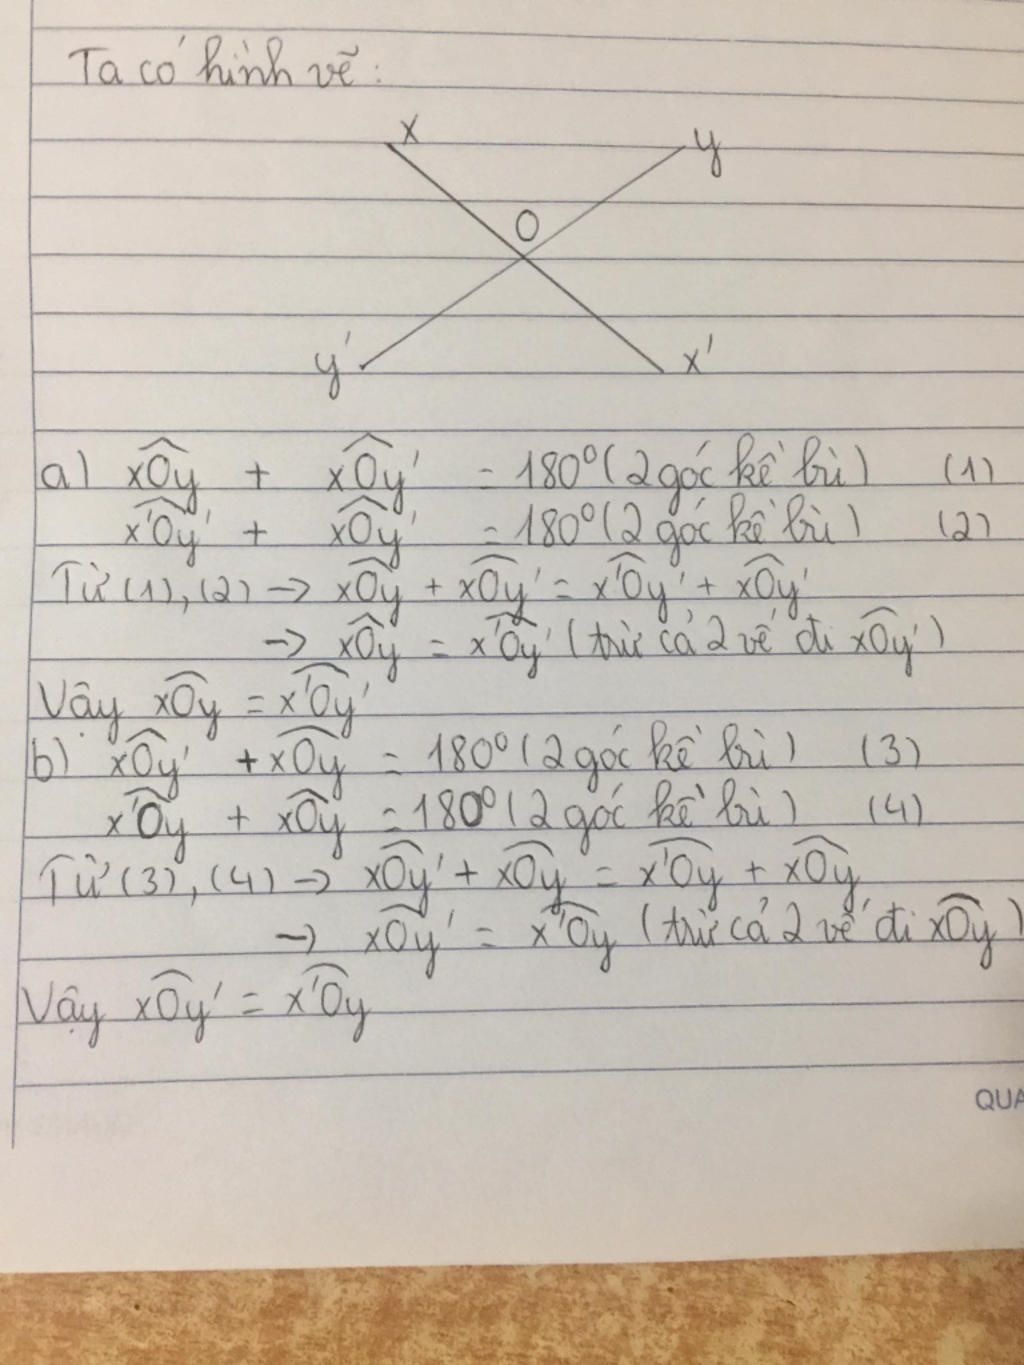 Ta có hình vẽ:
x
y
O
y'
x'
a) xOy + xOy' = 180° (2 góc kề bù) (1)
x'Oy' + xOy' = 180° (2 góc kề bù) (2)
Từ (1), (2) → xOy + xOy' = x'Oy' + xOy'
→ xOy = x'Oy' (trừ cả 2 vế đi xOy')
Vậy xOy = x'Oy'
b) xOy' + xOy = 180° (2 góc kề bù) (3)
x'Oy + xOy = 180° (2 góc kề bù) (4)
Từ (3), (4) → xOy' + xOy = x'Oy + xOy
→ xOy' = x'Oy (trừ cả 2 vế đi xOy)
Vậy xOy' = x'Oy
QUA